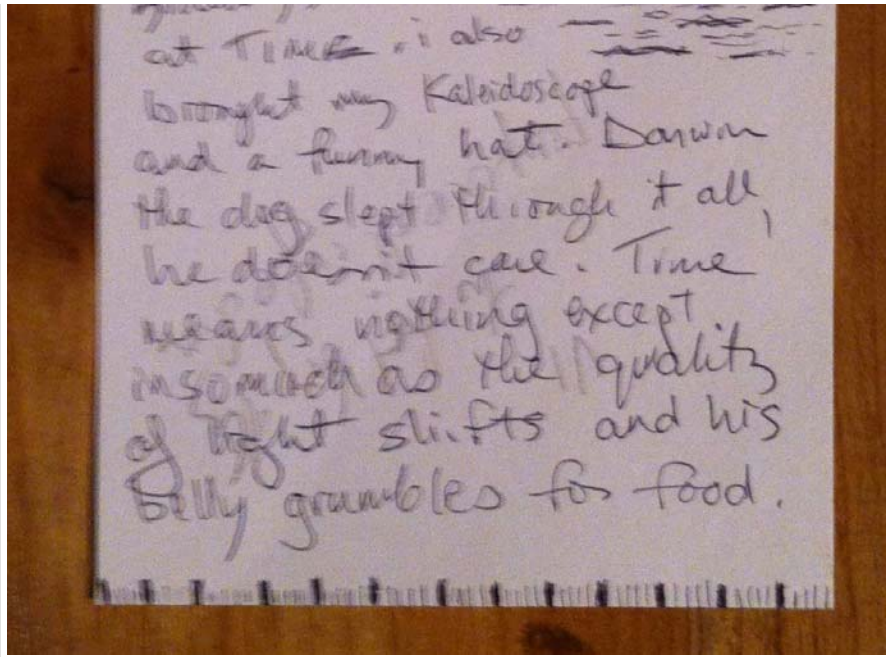 at Time. i also
brought my Kaleidoscope
and a funny hat. Darwin
the dog slept through it all,
he doesn't care. Time
means nothing except
insomuch as the quality
of light shifts and his
belly grumbles for food.